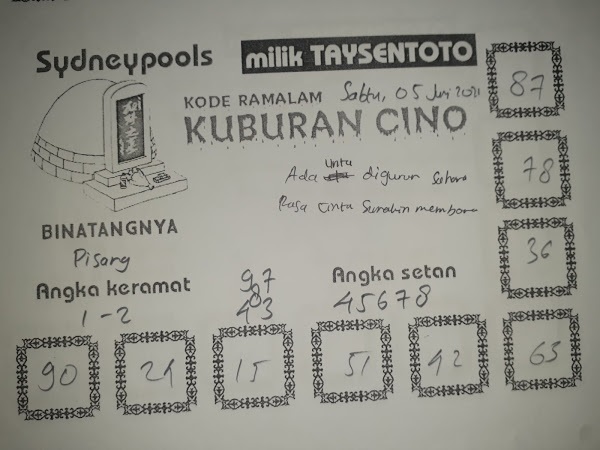 Sydneypools
milik TAYSENTOTO
87
KODE RAMALAM Sabtu, 05 Juni 2021
KUBURAN CINO
Ada unta digurun Sahara
Rasa Cinta Surabin membara
78
BINATANGNYA
Pisang
36
Angka keramat
1-2
97
8
43
Angka setan
45678
90
24
15
51
42
63